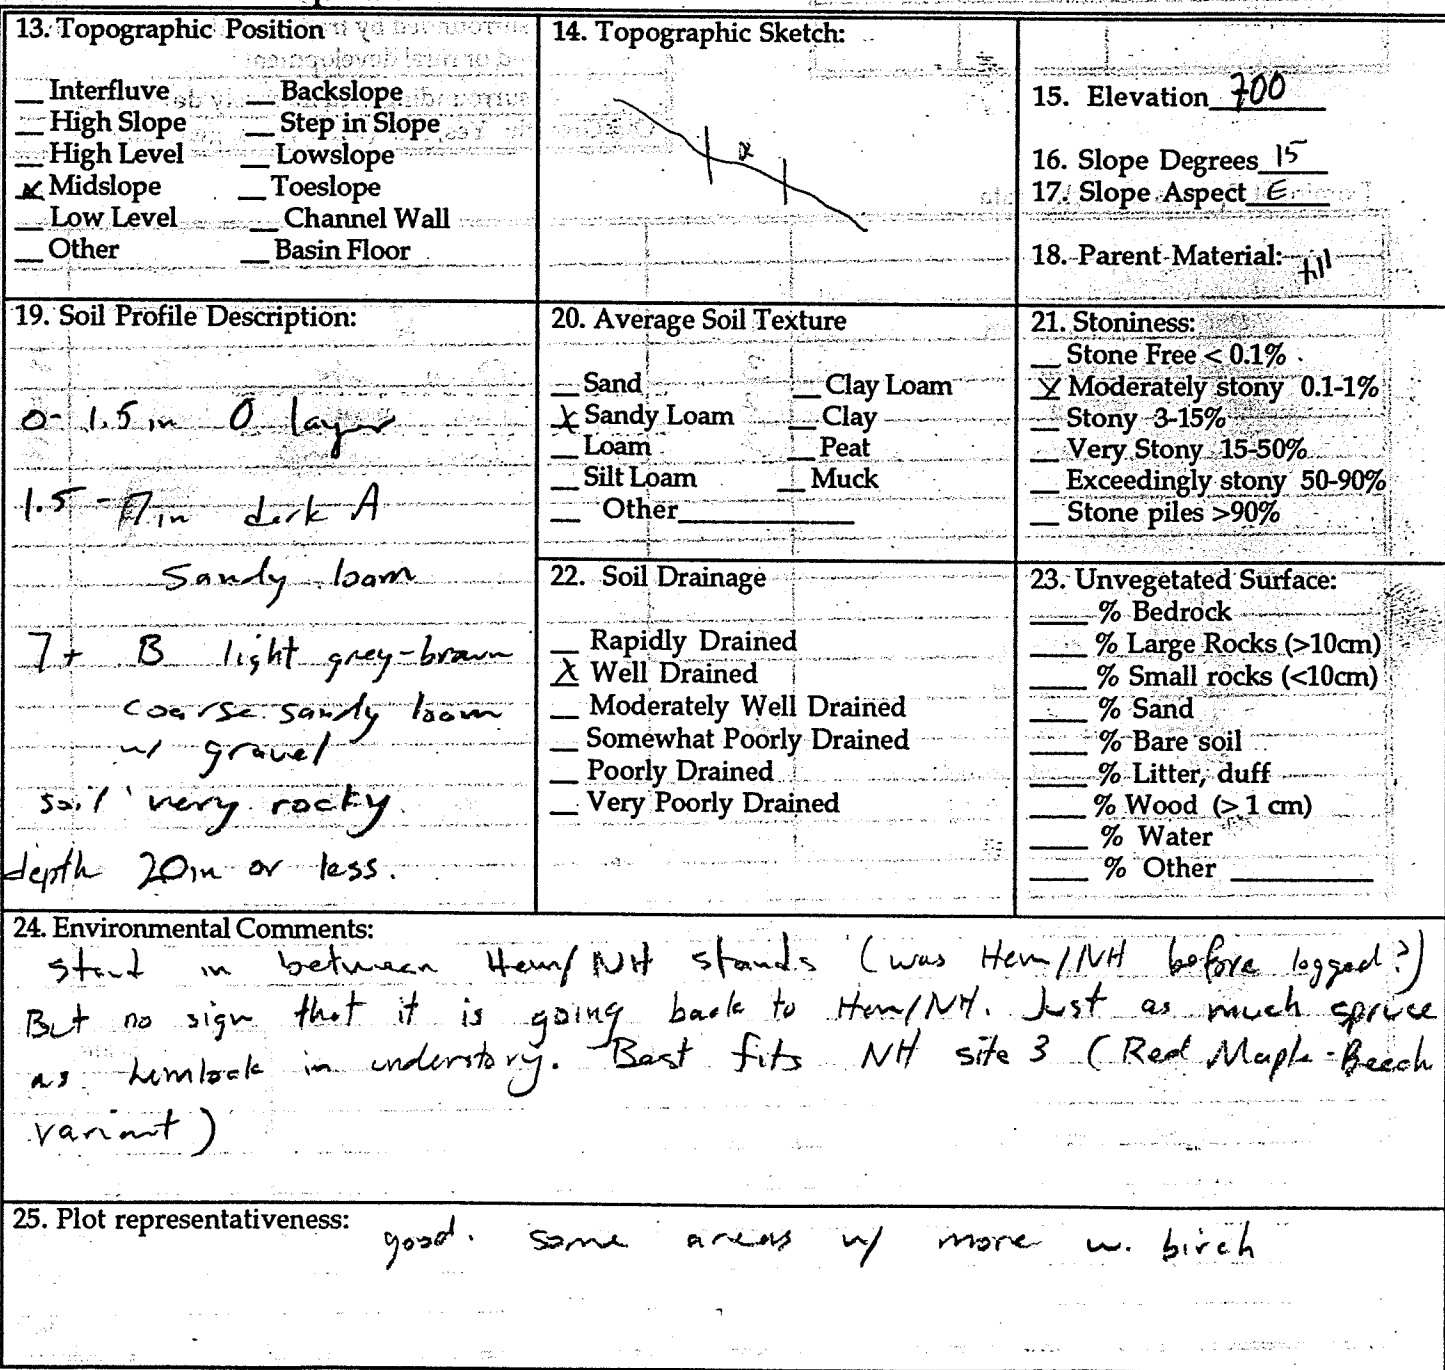 13. Topographic Position
__ Interfluve __ Backslope
__ High Slope __ Step in Slope
__ High Level __ Lowslope
x Midslope __ Toeslope
__ Low Level __ Channel Wall
__ Other __ Basin Floor
14. Topographic Sketch:
x
15. Elevation 700
16. Slope Degrees 15
17. Slope Aspect E
18. Parent Material: till
19. Soil Profile Description:
0-1.5 in O layer
1.5 - 7 in dark A
Sandy loam
7+ B light grey-brown
coarse sandy loam
w/ gravel
soil very rocky.
depth 20in or less.
20. Average Soil Texture
__ Sand __ Clay Loam
X Sandy Loam __ Clay
__ Loam __ Peat
__ Silt Loam __ Muck
__ Other__________
21. Stoniness:
__ Stone Free < 0.1%
X Moderately stony 0.1-1%
__ Stony 3-15%
__ Very Stony 15-50%
__ Exceedingly stony 50-90%
__ Stone piles >90%
22. Soil Drainage
__ Rapidly Drained
X Well Drained
__ Moderately Well Drained
__ Somewhat Poorly Drained
__ Poorly Drained
__ Very Poorly Drained
23. Unvegetated Surface:
____ % Bedrock
____ % Large Rocks (>10cm)
____ % Small rocks (<10cm)
____ % Sand
____ % Bare soil
____ % Litter, duff
____ % Wood (> 1 cm)
____ % Water
____ % Other __________
24. Environmental Comments:
stand in between Hem/NH stands (was Hem/NH before logged?)
But no sign that it is going back to Hem/NH. Just as much spruce
as hemlock in understory. Best fits NH site 3 (Red Maple-Beech
variant)
25. Plot representativeness: good. some areas w/ more w. birch